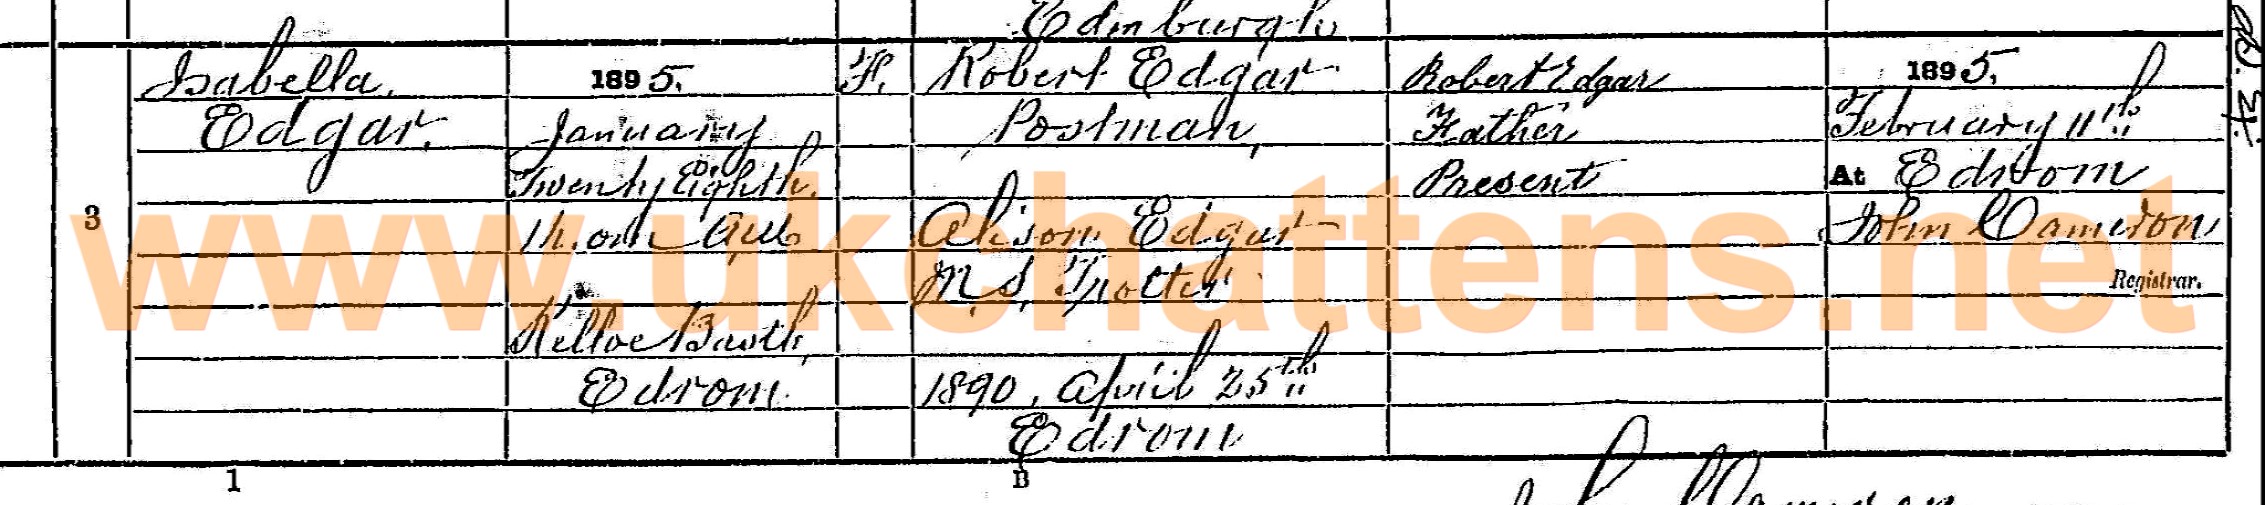 Edinburgh
3
Isabella
Edgar.
1895.
January
Twenty Eighth.
1h. om A.M.
Kelloe Bastle,
Edrom
F.
Robert Edgar
Postman,
Alison Edgar
M.S. Trotter
1890, April 25th
Edrom
Robert Edgar
Father
Present
1895.
February 11th
At Edrom
John Cameron
Registrar.
www.ukchattens.net
1
B